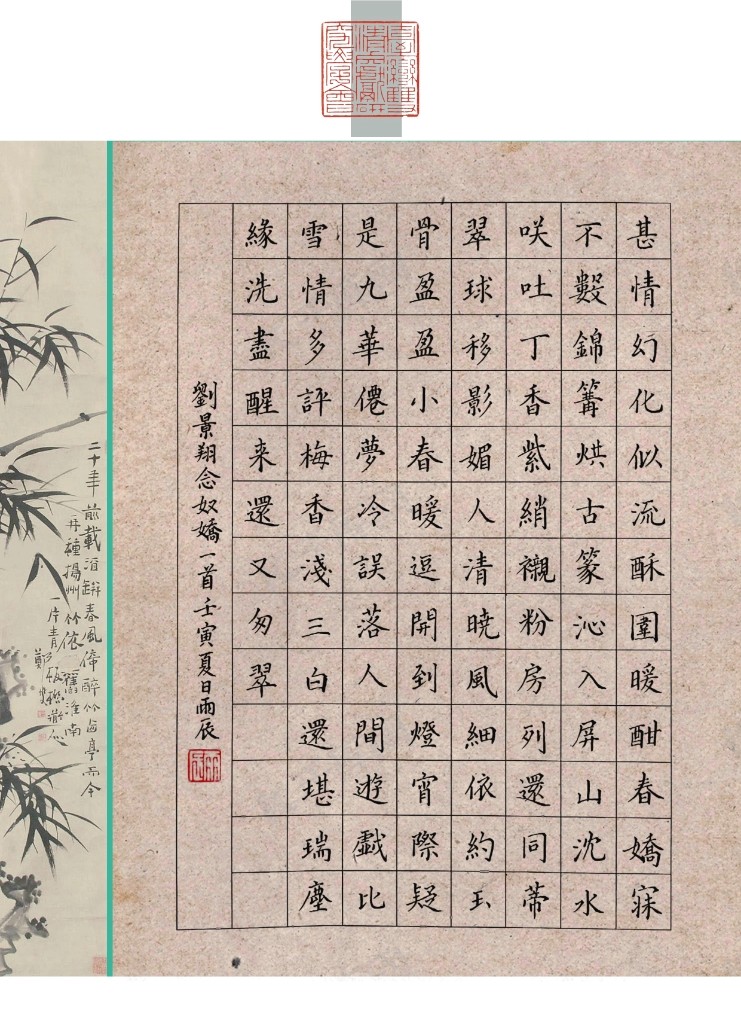 甚情幻化似流酥圍暖酣春嬌寐
不數錦篝烘古篆沁入屏山沈水
咲吐丁香紫綃襯粉房列還同蒂
翠球移影媚人清曉風細依約玉
骨盈盈小春暖逗開到燈宵際疑
是九華僊夢冷誤落人間遊戲比
雪情多評梅香淺三白還堪瑞塵
緣洗盡醒来還又匆翠
劉景翔念奴嬌一首壬寅夏日雨辰
二十年前載酒缾春風倚醉竹西亭而今
再種揚州竹依舊淮南
一片青板橋散人
鄭燮